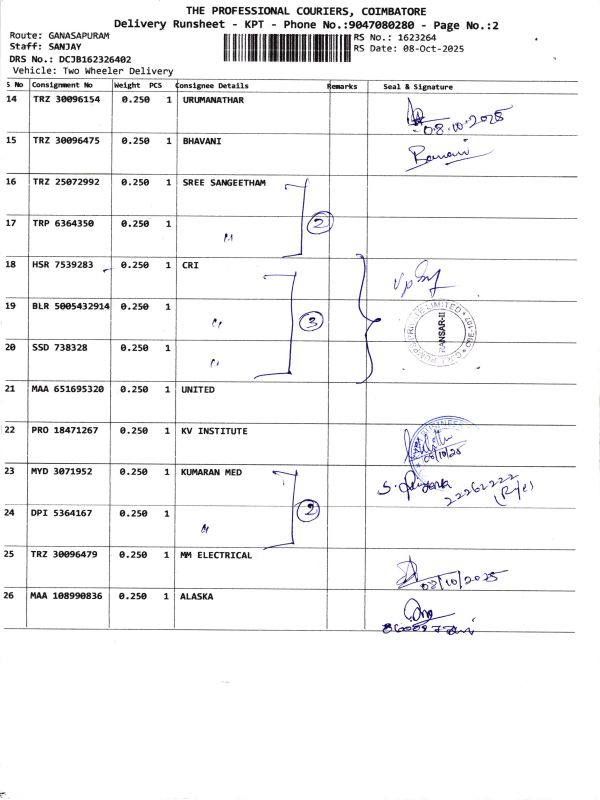 THE PROFESSIONAL COURIERS, COIMBATORE
Delivery Runsheet - KPT - Phone No.:9047080280 - Page No.:2
Route: GANASAPURAM
Staff: SANJAY
DRS No.: DCJB162326402
Vehicle: Two Wheeler Delivery
RS No.: 1623264
RS Date: 08-Oct-2025
S No Consignment No Weight PCS Consignee Details Remarks Seal & Signature
14 TRZ 30096154 0.250 1 URUMANATHAR
08.10.2025
15 TRZ 30096475 0.250 1 BHAVANI
16 TRZ 25072992 0.250 1 SREE SANGEETHAM
2
17 TRP 6364350 0.250 1 〃
18 HSR 7539283 0.250 1 CRI
19 BLR 5005432914 0.250 1 〃
3
20 SSD 738328 0.250 1 〃
21 MAA 651695320 0.250 1 UNITED
22 PRO 18471267 0.250 1 KV INSTITUTE
23 MYD 3071952 0.250 1 KUMARAN MED
2
24 DPI 5364167 0.250 1 〃
25 TRZ 30096479 0.250 1 MM ELECTRICAL
08/10/2025
26 MAA 108990836 0.250 1 ALASKA